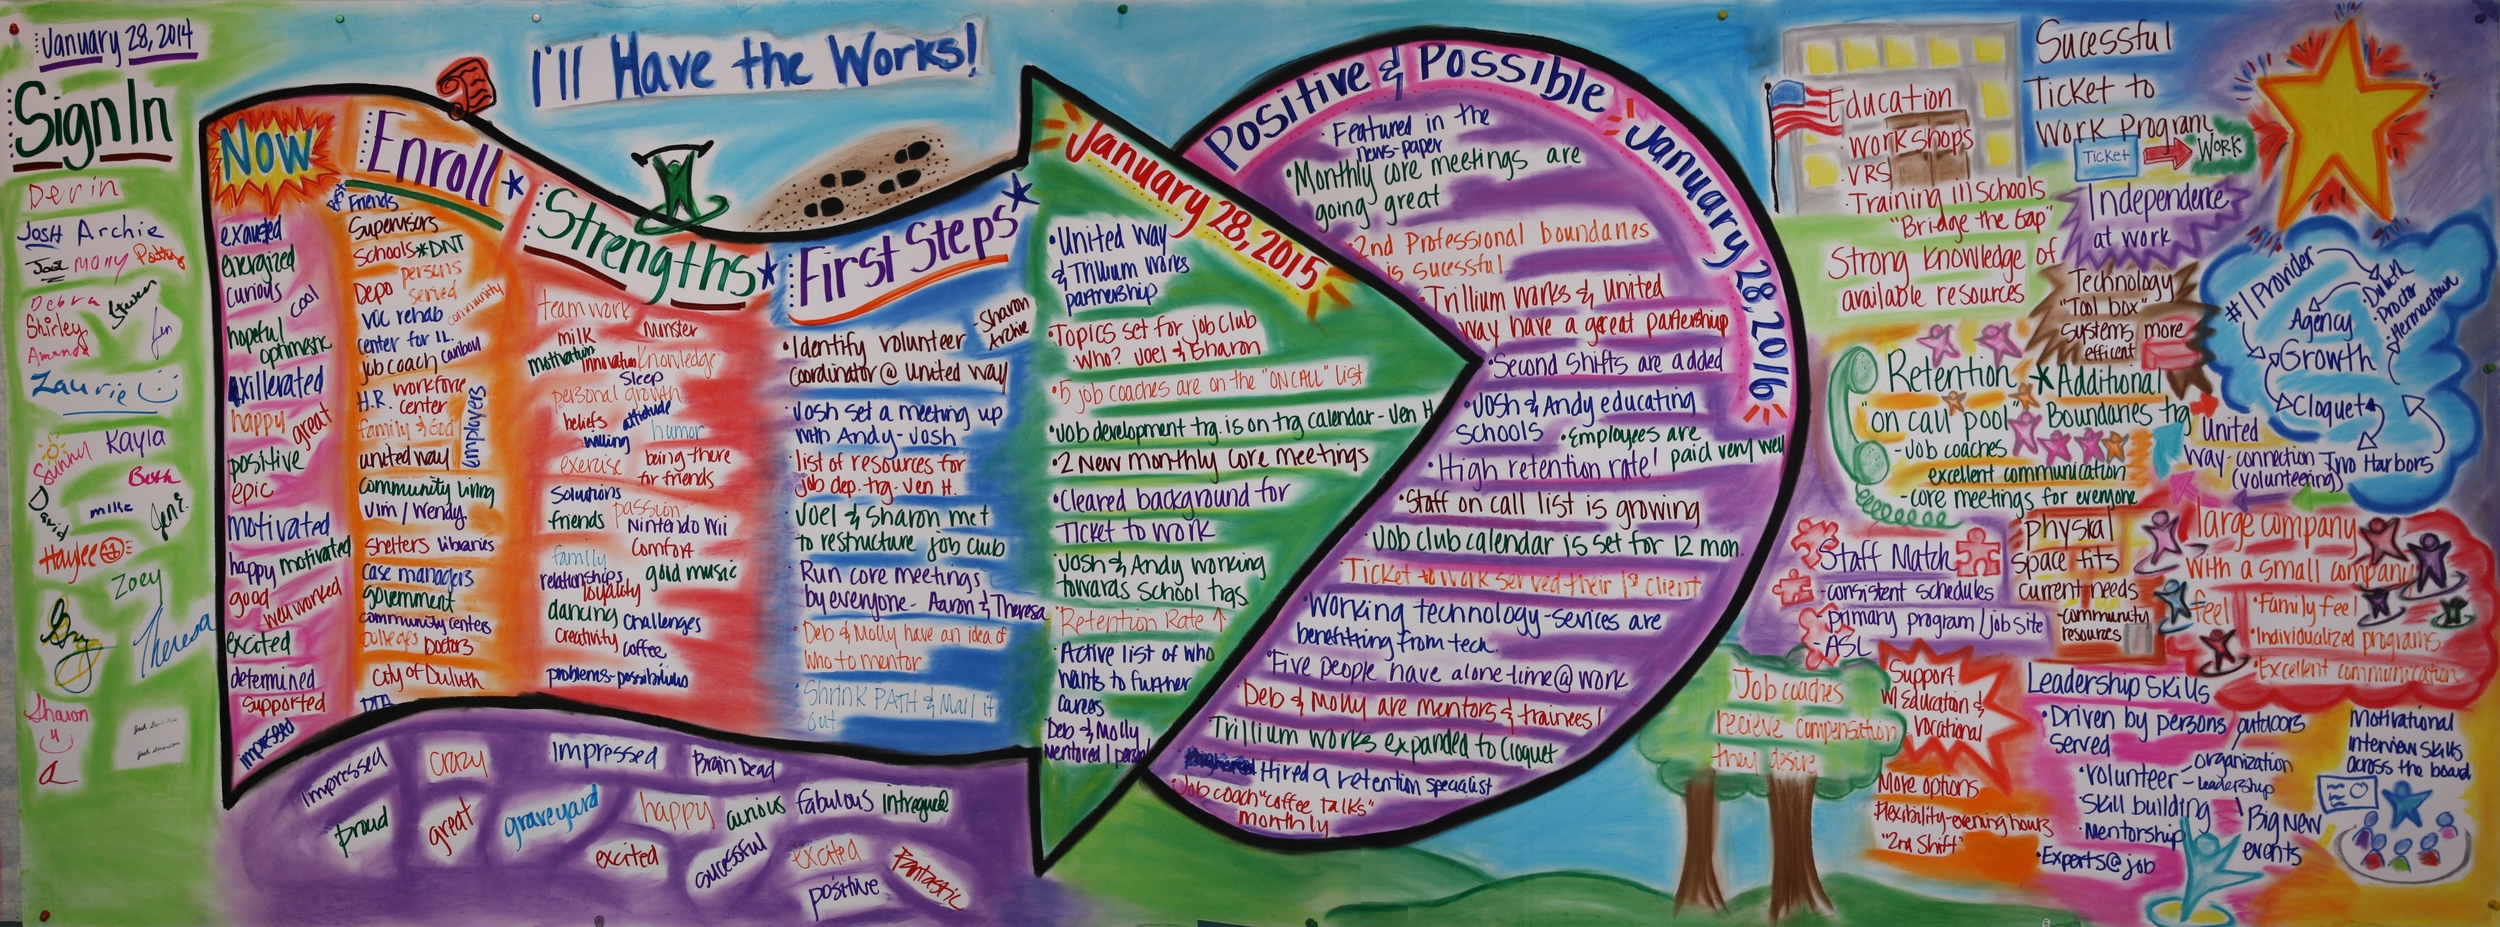 January 28, 2014
Sign In
Devin
Josh Archie
Joel Molly Patty
Debra
Steven
Shirley
Jen
Amanda
Laurie
Sunny Kayla
Beth
David
mike
Jen E.
Haylee
Zoey
Theresa
Sharon
I'll Have the Works!
NOW
exausted
energized
curious
cool
hopeful
optimestic
exillerated
happy great
positive
epic
motivated
happy motivated
good
well worked
excited
determined
supported
impressed
Enroll
Friends
Supervisors
Schools * DNT
persons
served
Depo
community
voc rehab
center for IL.
job coach caribou
H.R. workforce
center
employers
family & God
united way
Community Living
Jim / Wendy
Shelters libraries
case managers
government
community centers
colleges Doctors
City of Duluth
DTA
Strengths
team work
milk Munster
motivation innovation knowledge
sleep
personal growth
beliefs attitude
willing humor
exercise being there
for friends
Solutions
friends passion
Nintendo Wii
Comfort
family
relationships good music
loyality
dancing challenges
creativity coffee
problems-possibilities
First Steps
• Identify volunteer - Sharon
Archie
coordinator @ United Way
• Josh set a meeting up
with Andy - Josh
• list of resources for
job dep. trg. Jen H.
• Joel & Sharon met
to restructure job club
• Run core meetings
by everyone - Aaron & Theresa
• Deb & Molly have an idea of
who to mentor
• Shrink PATH & Mail it
out
January 28, 2015
• United Way
& Trillium Works
partnership
• Topics set for job club
who? Joel & Sharon
• 5 job coaches are on the "ON CALL" list
• Job development trg. is on trg calendar - Jen H
• 2 New monthly core meetings
• Cleared background for
Ticket to Work
• Josh & Andy working
towards School trgs
• Retention Rate ↑
• Active list of who
wants to further
careers
Deb & Molly
Mentored 1 person
Positive & Possible January 28, 2016
• Featured in the
news-paper
• Monthly core meetings are
going great
• 2nd Professional boundaries
is sucessful
• Trillium Works & United
way have a great partnership
• Second Shifts are added
• Josh & Andy educating
Schools • Employees are
paid very well
• High retention rate!
• Staff on call list is growing
• Job club calendar is set for 12 mon.
• Ticket to work served their 1st client
• Working technology - sevices are
benefitting from tech.
• Five people have alone-time @ work
• Deb & Molly are mentors & trainees!
Trillium Works expanded to Cloquet
Hired a retention specialist
• Job coach "coffee talks"
monthly
impressed crazy impressed Brain Dead
proud great graveyard happy curious fabulous intregued
excited sucessful excited
positive fantastic
Education
• workshops
• VRS
• Training in schools
"Bridge the Gap"
Strong knowledge of
available resources
Sucessful
Ticket to
Work Program
Ticket
Work
Independence
at work
Technology
"Tool box"
Systems more
efficent
#1 Provider
• Duluth
• Proctor
• Hermantown
Agency
Growth
Cloquet
Two Harbors
Retention * Additional
"on call pool" Boundaries trg
- Job coaches
excellent communication
- core meetings for everyone
United
Way - connection
(volunteering)
Staff Match
- consistent schedules
- primary program / job site
- ASL
physical
space fits
current needs
- community
resources
large company
with a small company
feel
• Family feel
• Individualized programs
• Excellent communication
Job coaches
recieve compensation
they desire
Support
w/ Education &
Vocational
More options
flexibility - evening hours
"2nd Shift"
Leadership skills
• Driven by persons
served
outdoors
• Volunteer - organization
- leadership
• Skill building
• Mentorship
• Experts @ job
Big New
events
Motivational
Interview skills
across the board